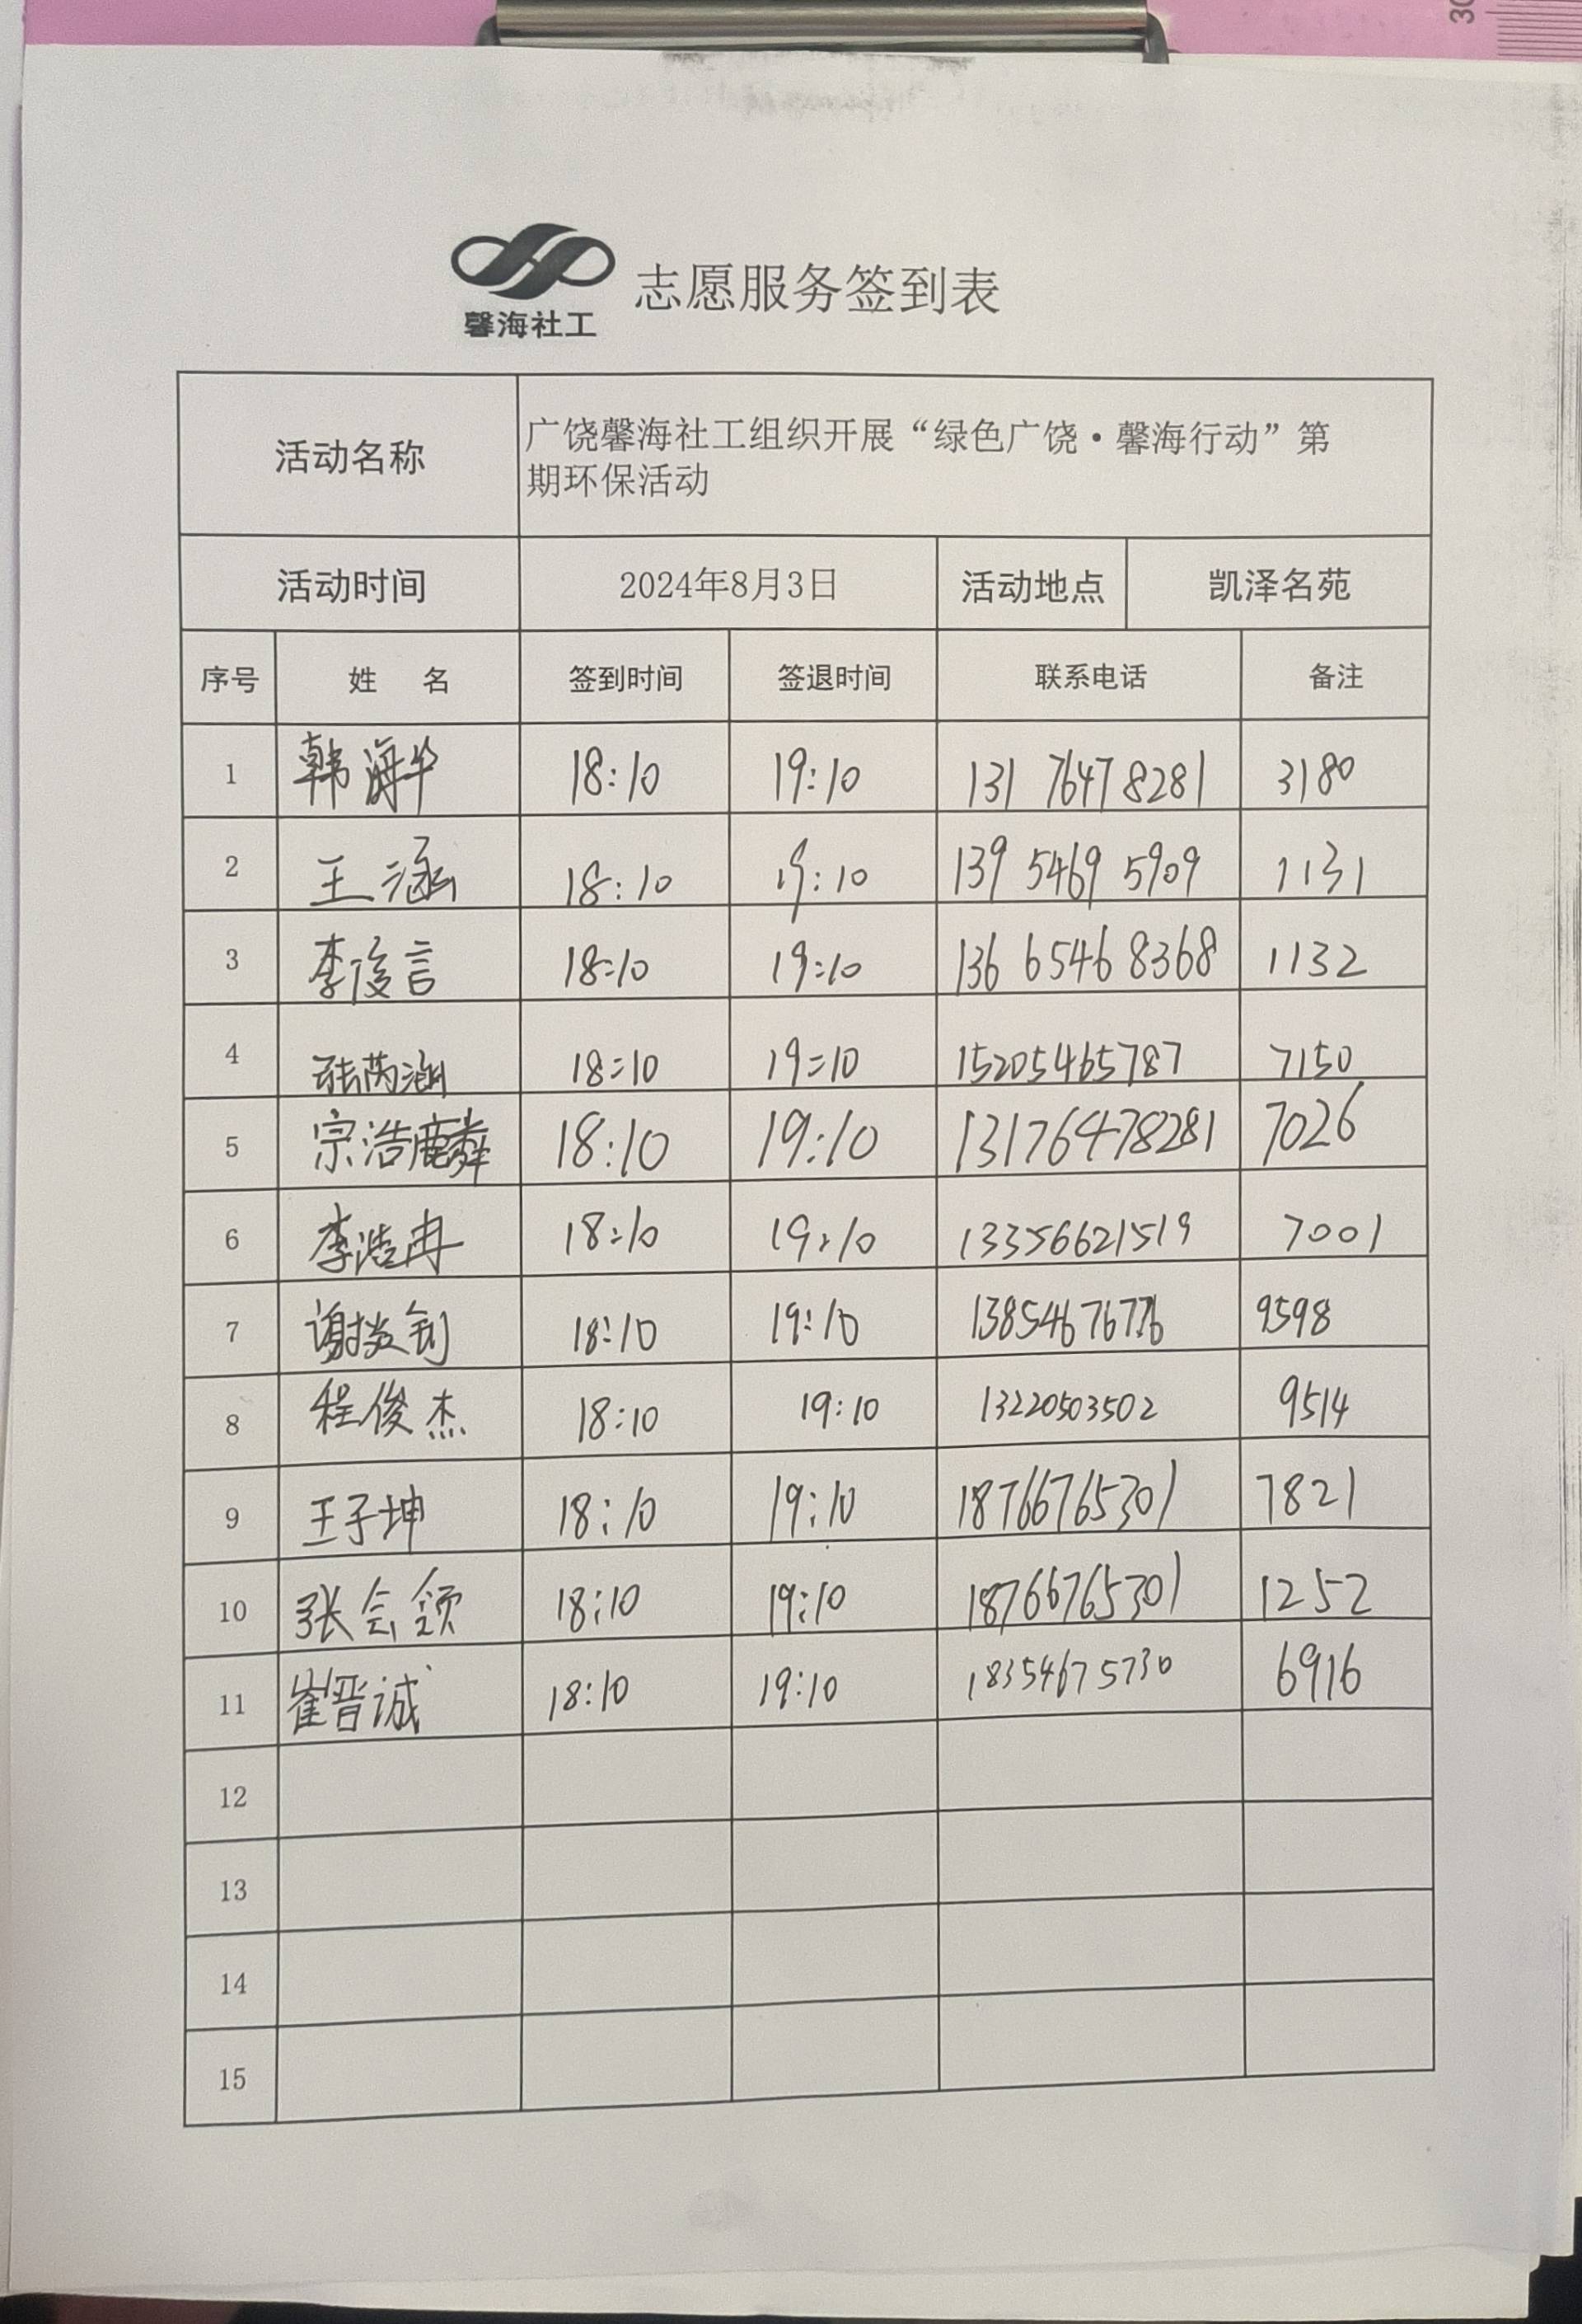 30
馨海社工
志愿服务签到表
活动名称 广饶馨海社工组织开展“绿色广饶·馨海行动”第
期环保活动
活动时间 2024年8月3日 活动地点 凯泽名苑
序号 姓 名 签到时间 签退时间 联系电话 备注
1 韩海华 18:10 19:10 131 7647 8281 3180
2 王涵 18:10 19:10 139 5469 5909 1131
3 李俊言 18:10 19:10 136 6546 8368 1132
4 张芮涵 18:10 19:10 15205465787 7150
5 宗浩麟 18:10 19:10 13176478281 7026
6 李浩冉 18:10 19:10 13356621519 7001
7 谢 18:10 19:10 9598
8 程俊杰 18:10 19:10 13220503502 9514
9 王子坤 18:10 19:10 18766765301 7821
10 张会颂 18:10 19:10 18766765301 1252
11 崔晋诚 18:10 19:10 18354675730 6916
12
13
14
15